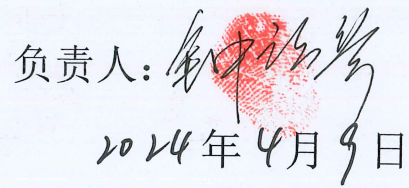 负责人：
2024年4月9日